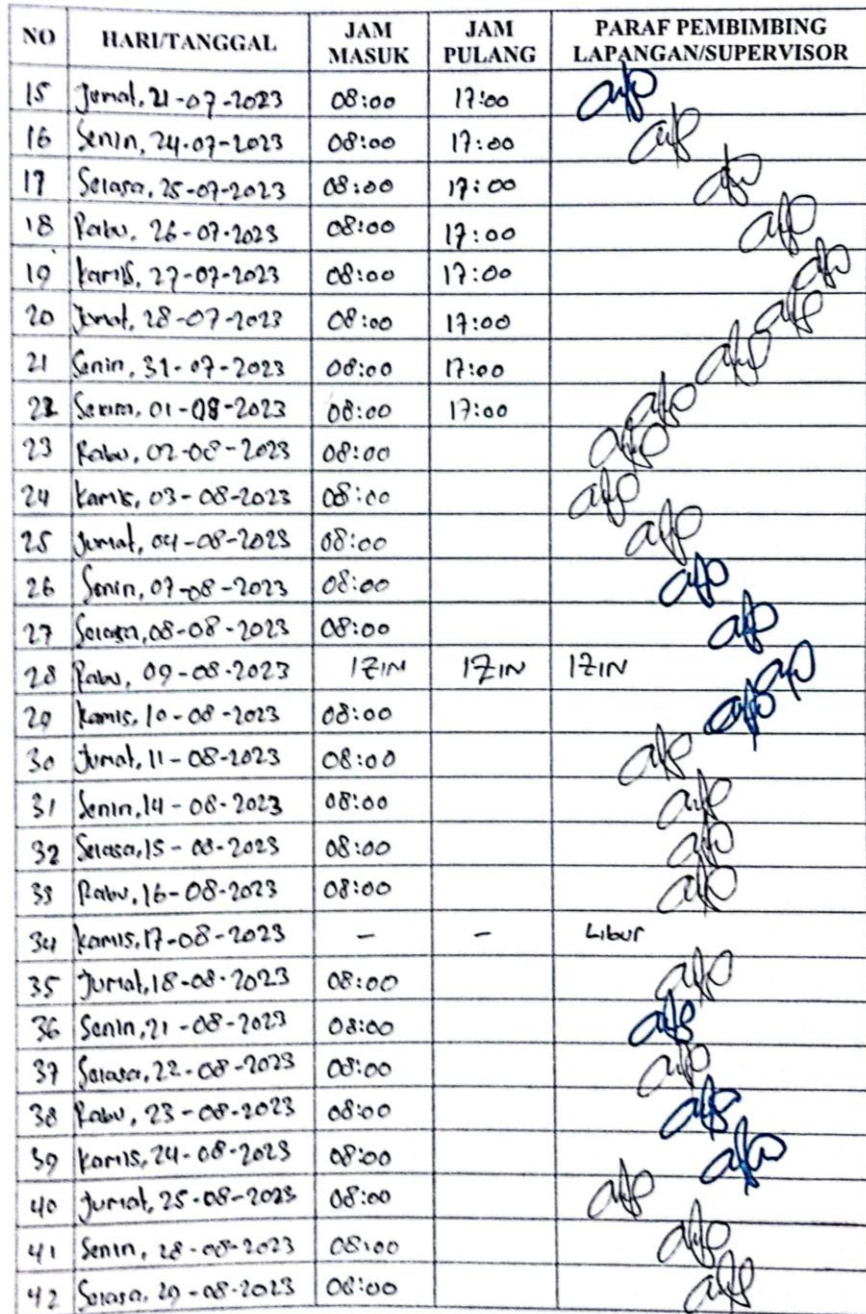 NO HARI/TANGGAL JAM MASUK JAM PULANG PARAF PEMBIMBING LAPANGAN/SUPERVISOR
15 Jumat, 21-07-2023 08:00 17:00
16 Senin, 24-07-2023 08:00 17:00
17 Selasa, 25-07-2023 08:00 17:00
18 Rabu, 26-07-2023 08:00 17:00
19 Kamis, 27-07-2023 08:00 17:00
20 Jumat, 28-07-2023 08:00 17:00
21 Senin, 31-07-2023 08:00 17:00
22 Selasa, 01-08-2023 08:00 17:00
23 Rabu, 02-08-2023 08:00
24 Kamis, 03-08-2023 08:00
25 Jumat, 04-08-2023 08:00
26 Senin, 07-08-2023 08:00
27 Selasa, 08-08-2023 08:00
28 Rabu, 09-08-2023 IZIN IZIN IZIN
29 Kamis, 10-08-2023 08:00
30 Jumat, 11-08-2023 08:00
31 Senin, 14-08-2023 08:00
32 Selasa, 15-08-2023 08:00
33 Rabu, 16-08-2023 08:00
34 Kamis, 17-08-2023 - - Libur
35 Jumat, 18-08-2023 08:00
36 Senin, 21-08-2023 08:00
37 Selasa, 22-08-2023 08:00
38 Rabu, 23-08-2023 08:00
39 Kamis, 24-08-2023 08:00
40 Jumat, 25-08-2023 08:00
41 Senin, 28-08-2023 08:00
42 Selasa, 29-08-2023 08:00